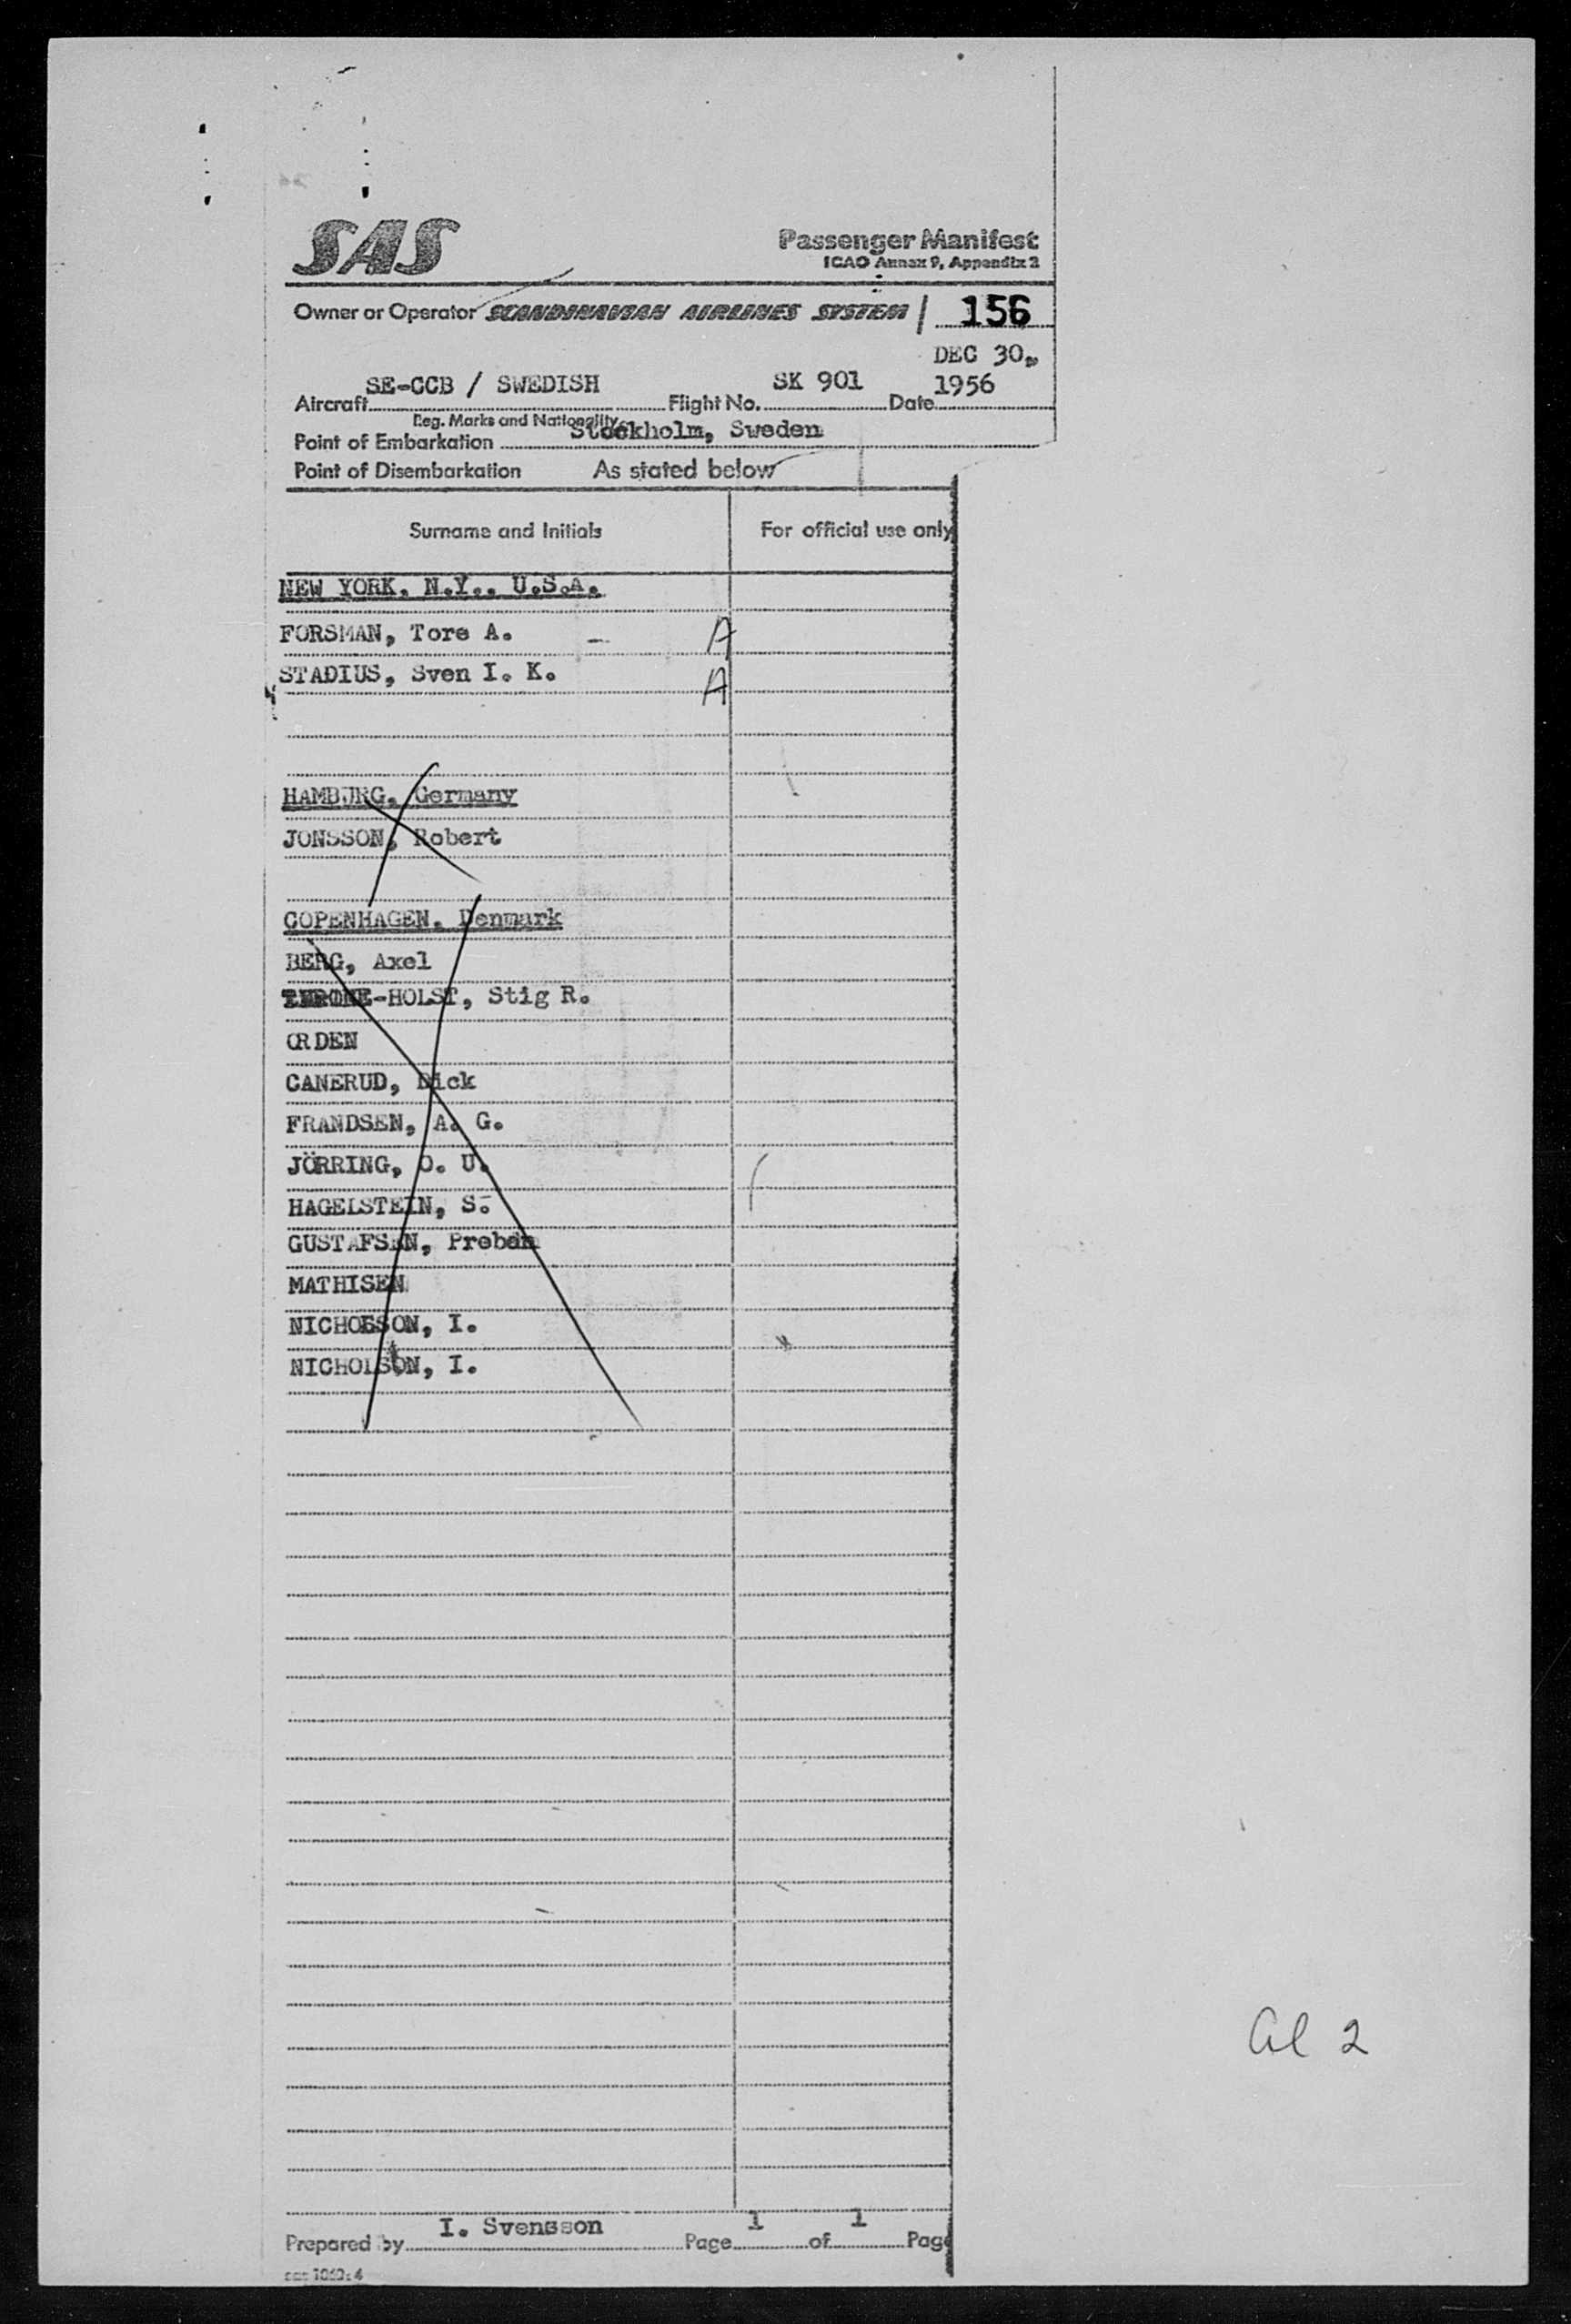 SAS
Passenger Manifest
ICAO Annex 9, Appendix 2
Owner or Operator SCANDINAVIAN AIRLINES SYSTEM / 156
DEC 30,
SE-CCB / SWEDISH SK 901 1956
Aircraft Flight No. Date
Reg. Marks and Nationality
Point of Embarkation Stockholm, Sweden
Point of Disembarkation As stated below
Surname and Initials For official use only
NEW YORK, N.Y., U.S.A.
FORSMAN, Tore A. - A
STADIUS, Sven I. K. A
HAMBURG, Germany
JONSSON, Robert
COPENHAGEN, Denmark
BERG, Axel
THRONE-HOLST, Stig R.
ORDEN
CANERUD, Dick
FRANDSEN, A. G.
JÖRRING, O. U.
HAGELSTEIN, S.
GUSTAFSEN, Preben
MATHISEN
NICHOLSON, I.
NICHOLSON, I.
al 2
I. Svensson 1 1
Prepared by Page of Page